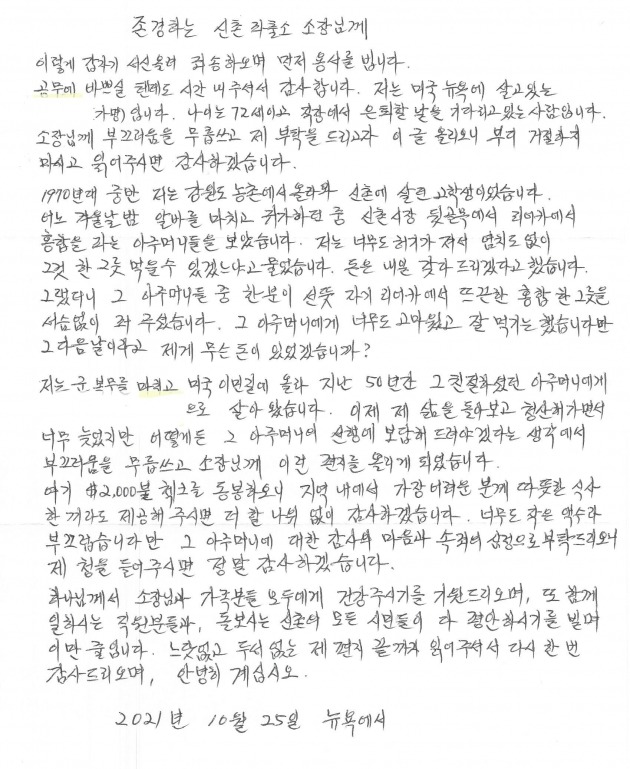 존경하는 신촌 파출소 소장님께
이렇게 갑자기 서신올려 죄송하오며 먼저 용서를 빕니다.
공무에 바쁘실 텐데도 시간 내주셔서 감사합니다. 저는 미국 뉴욕에 살고있는
가명)입니다. 나이는 72세이고 직장에서 은퇴할 날을 기다리고 있는 사람입니다.
소장님께 부끄러움을 무릅쓰고 제 부탁을 드리고자 이 글 올리오니 부디 거절하지
마시고 읽어주시면 감사하겠습니다.
1970년대 중반 저는 강원도 농촌에서 올라와 신촌에 살던 고학생이었습니다.
어느 겨울날 밤 알바를 마치고 귀가하던 중 신촌시장 뒷골목에서 리어카에서
홍합을 파는 아주머니들을 보았습니다. 저는 너무도 허기가 져서 염치도 없이
그것 한 그릇 먹을수 있겠느냐고 물었습니다. 돈은 내일 갖다 드리겠다고 했습니다.
그랬더니 그 아주머니들 중 한분이 선뜻 자기 리어카에서 뜨끈한 홍합 한그릇을
서슴없이 퍼 주셨습니다. 그 아주머니에게 너무도 고마웠고 잘 먹기는 했습니다만
그 다음날이라고 제게 무슨 돈이 있었겠습니까?
저는 군 복무를 마치고 미국 이민길에 올라 지난 50년간 그 친절하셨던 아주머니에게
으로 살아 왔습니다. 이제 제 삶을 돌아보고 청산해가면서
너무 늦었지만 어떻게든 그 아주머니의 선행에 보답해 드려야겠다는 생각에서
부끄러움을 무릅쓰고 소장님께 이런 편지를 올리게 되었습니다.
여기 $2,000불 체크를 동봉하오니 지역 내에서 가장 어려운 분께 따뜻한 식사
한 끼라도 제공해 주시면 더 할 나위 없이 감사하겠습니다. 너무도 작은 액수라
부끄럽습니다만 그 아주머니에 대한 감사의 마음과 속죄의 심정으로 부탁드리오니
제 청을 들어주시면 정말 감사하겠습니다.
하나님께서 소장님과 가족분들 모두에게 건강주시기를 기원드리오며, 또 함께
일하시는 직원분들과, 돌보시는 신촌의 모든 시민들이 다 평안하시기를 빌며
이만 줄입니다. 느닷없고 두서 없는 제 편지 끝까지 읽어주셔서 다시 한 번
감사드리오며, 안녕히 계십시오.
2021년 10월 25일 뉴욕에서